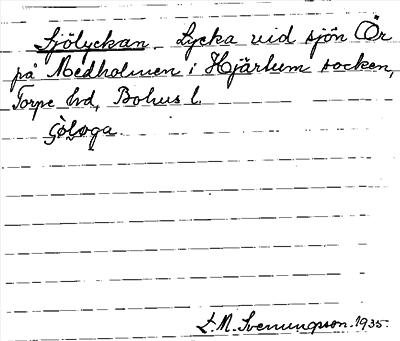 Sjölyckan. Lycka vid sjön Ör
på Medholmen i Hjärtum socken,
Torpe hd, Bohus l.
S. M. Svenungsson. 1935.